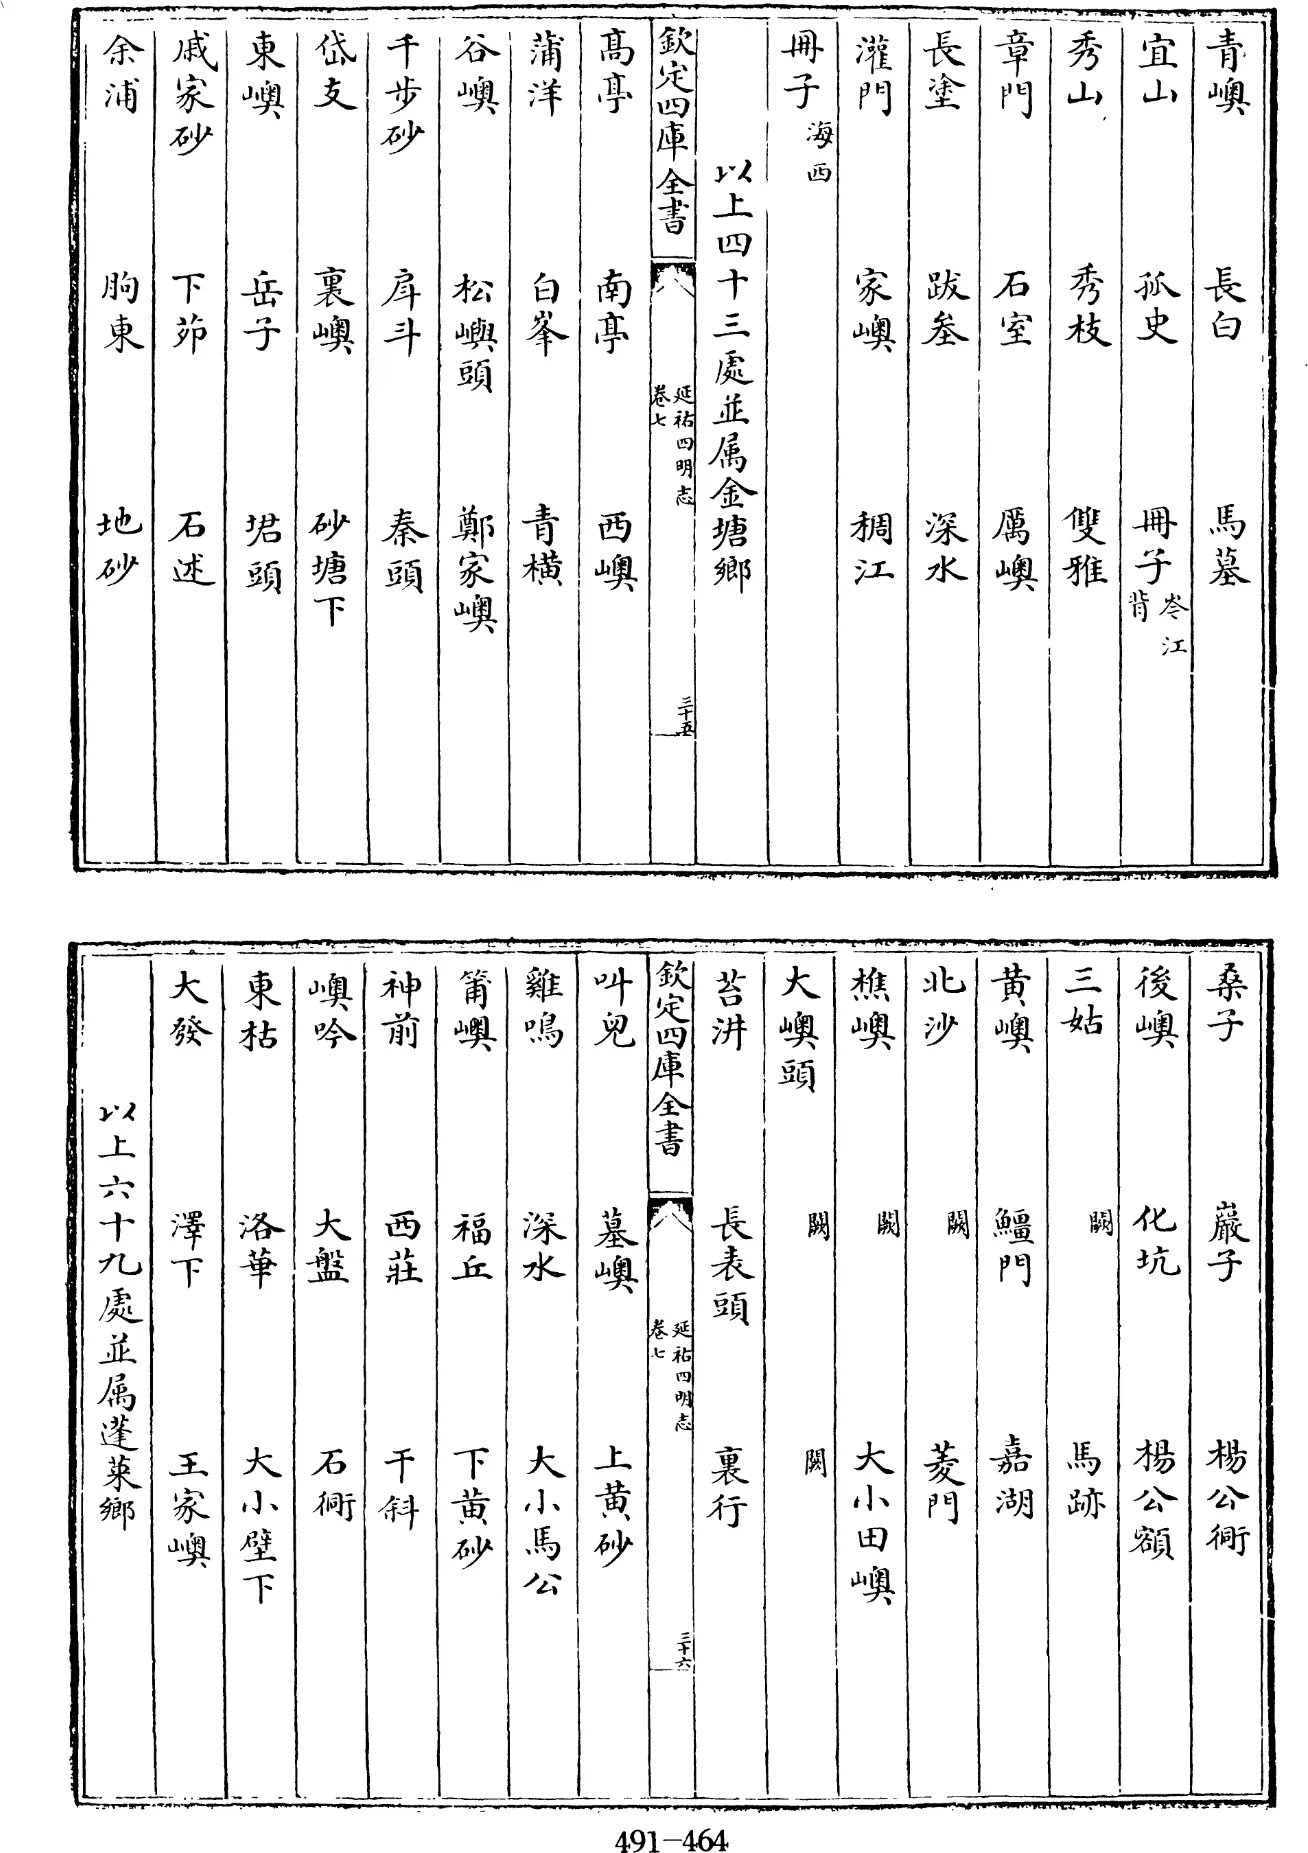 青嶴　長白　馬墓
宜山　孤史　冊子岑江背
秀山　秀枝　雙雅
章門　石室　厲嶴
長塗　跋叁　深水
灌門　家嶴　稠江
冊子海西
以上四十三處並属金塘鄉
欽定四庫全書　延祐四明志卷七　三十五
髙亭　南亭　西嶴
蒲洋　白峯　青橫
谷嶴　松嶼頭　鄭家嶴
千步砂　戽斗　秦頭
岱支　裏嶴　砂塘下
東嶴　岳子　頭
戚家砂　下茆　石述
余浦　朐東　地砂
桑子　巖子　楊公衕
後嶴　化坑　楊公額
三姑　闕　馬跡
黄嶴　鱷門　嘉湖
北沙　闕　菱門
樵嶴　闕　大小田嶴
大嶴頭　闕　闕
苔汫　長表頭　裏行
欽定四庫全書　延祐四明志卷七　三十六
叫兒　墓嶴　上黄砂
雞鳴　深水　大小馬公
箭嶴　福丘　下黄砂
神前　西莊　干斜
嶴吟　大盤　石衕
東枯　洛華　大小壁下
大發　澤下　王家嶴
以上六十九處並属蓬萊鄉
491-464